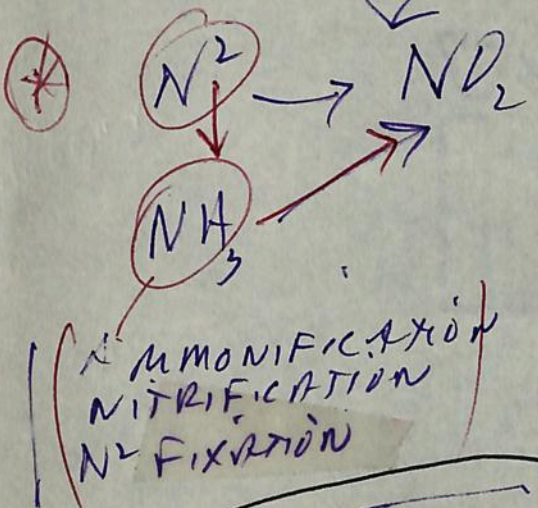 N² → NO₂
NH₃
AMMONIFICATION
NITRIFICATION
N² FIXATION